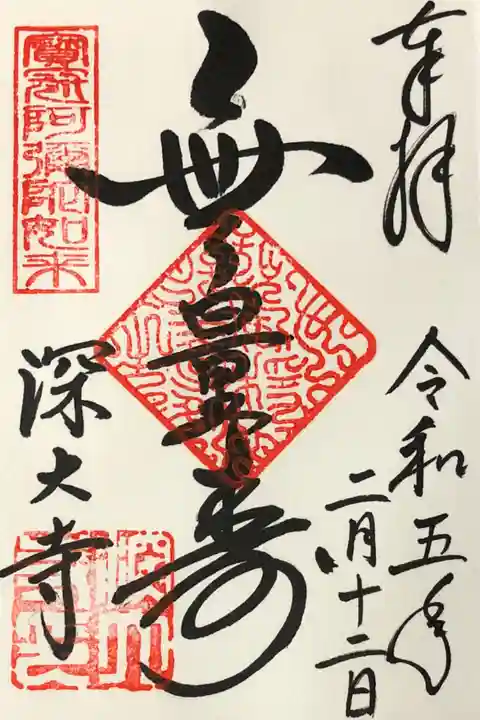 奉拝
令和五年
二月十二日
無量寿
寶冠阿彌陀如来
深大寺